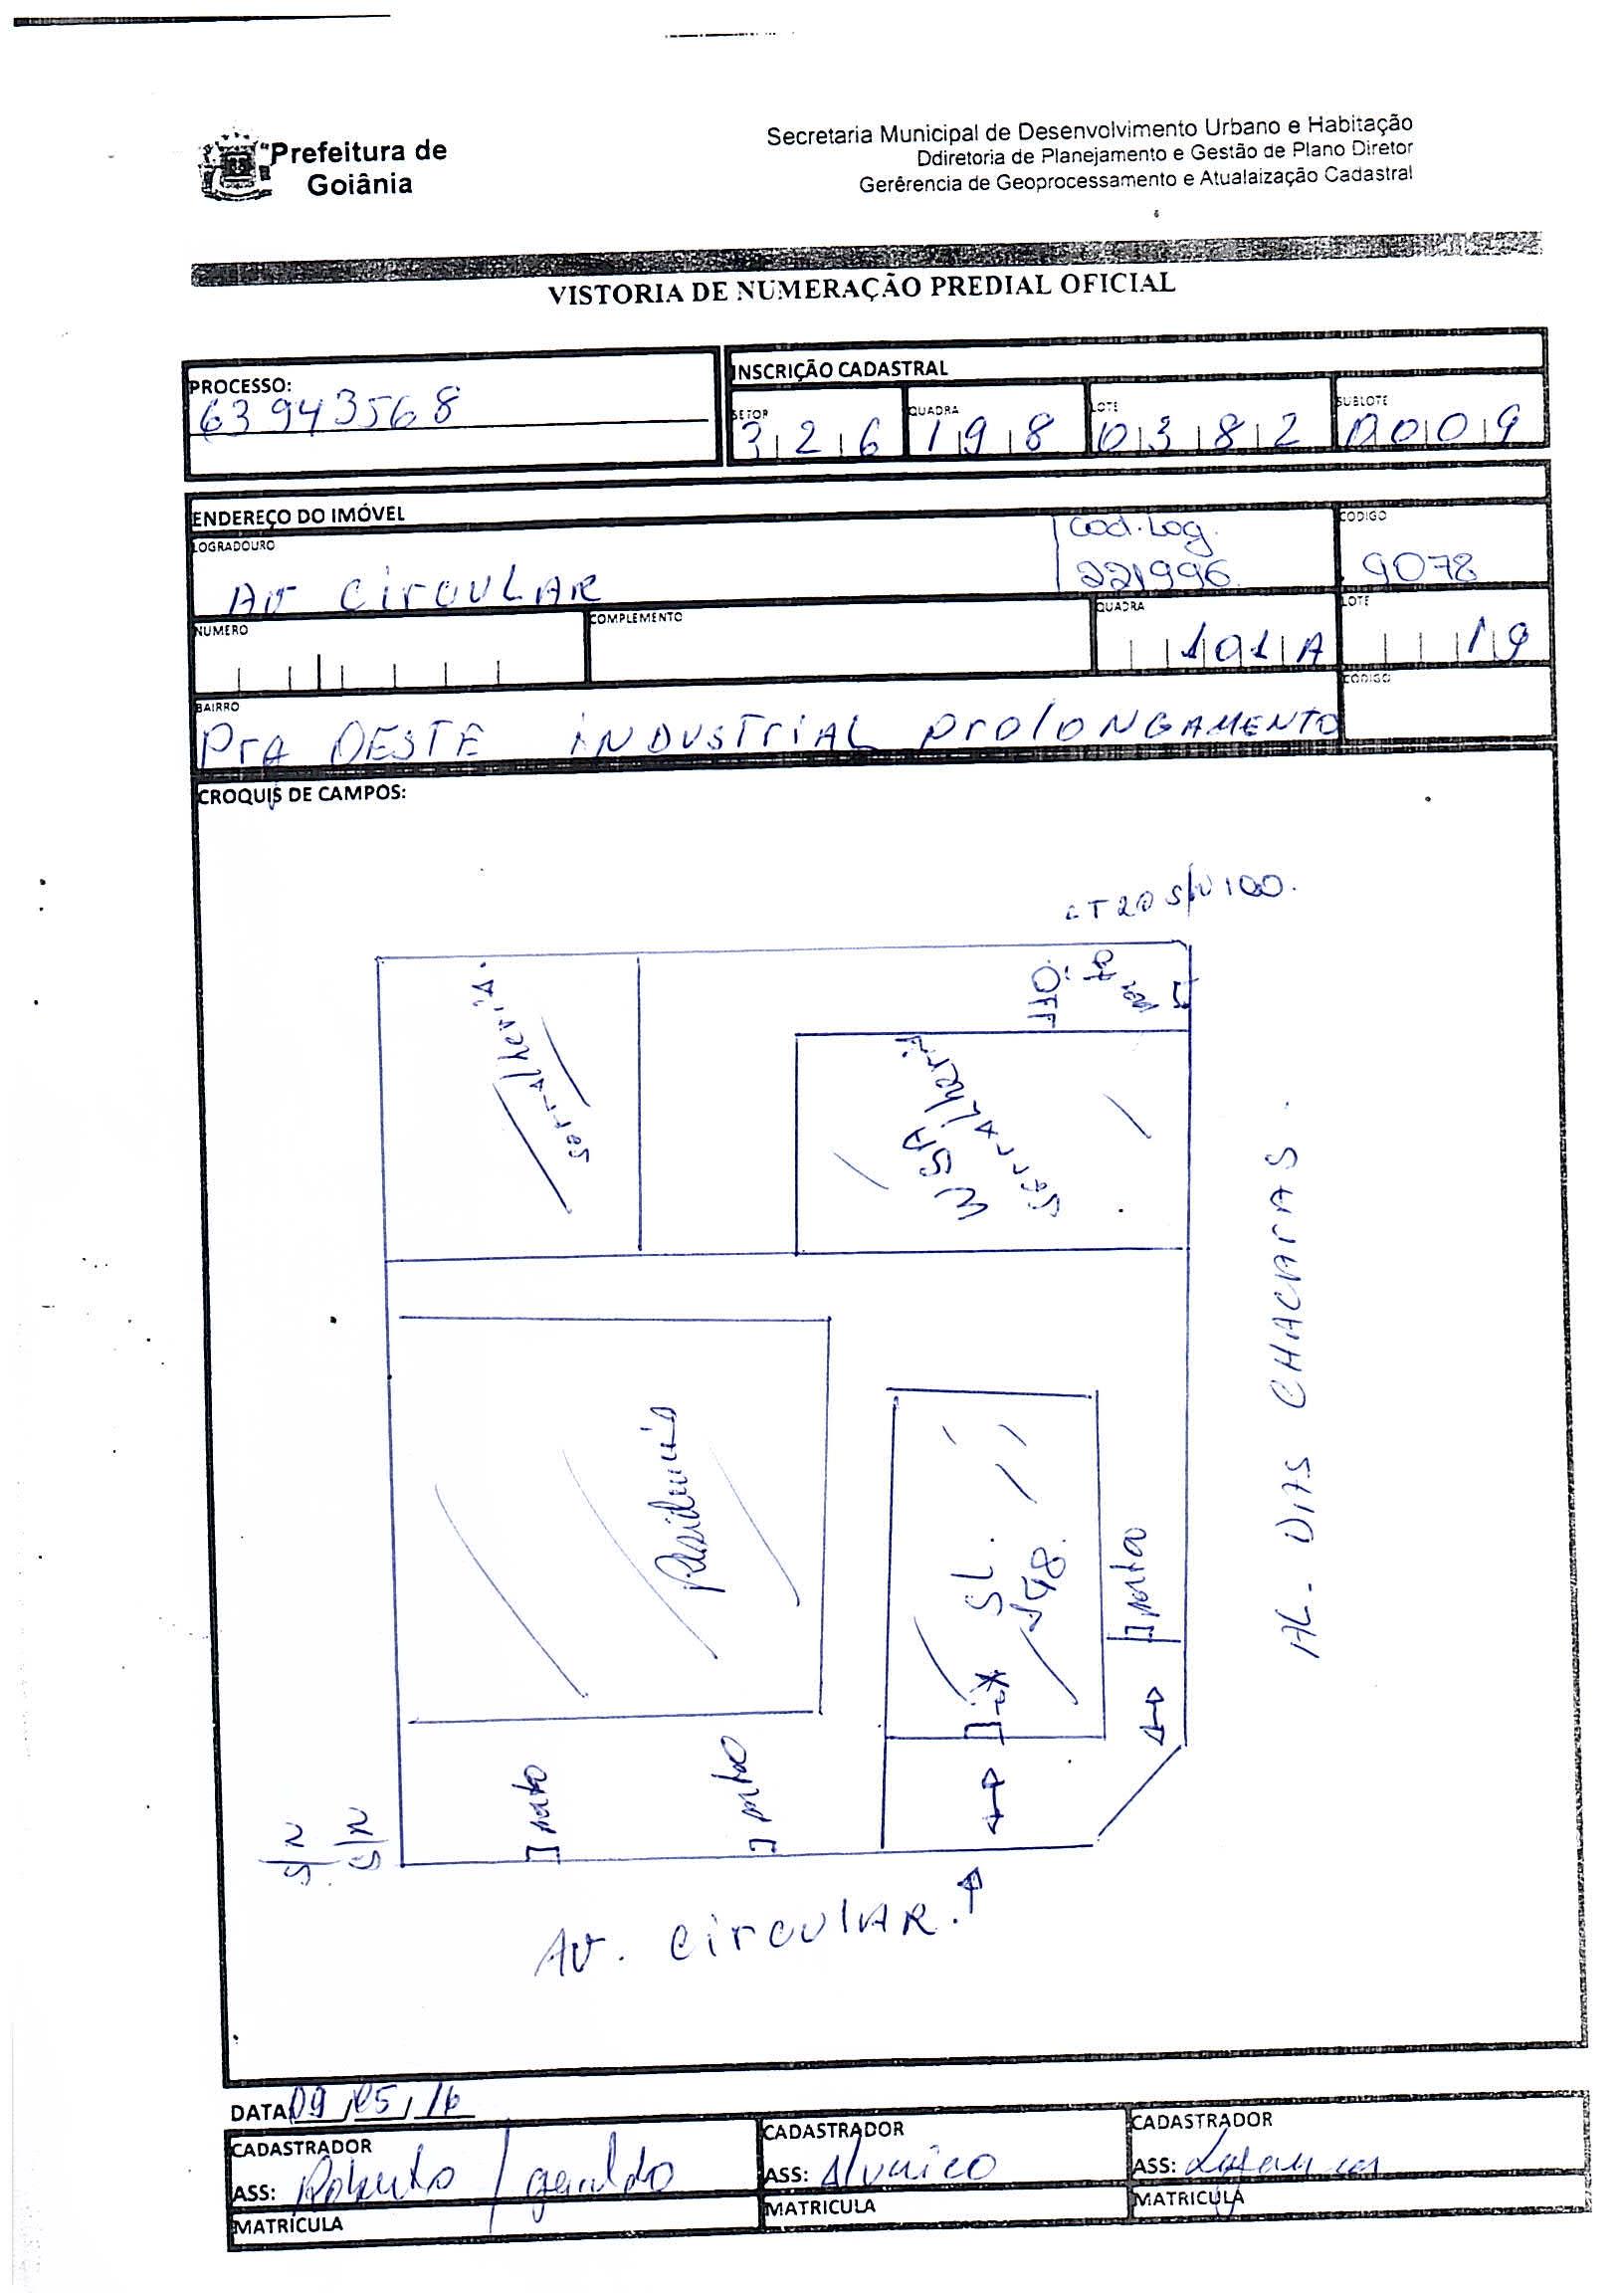 Prefeitura de
Goiânia
Secretaria Municipal de Desenvolvimento Urbano e Habitação
Ddiretoria de Planejamento e Gestão de Plano Diretor
Gerêrencia de Geoprocessamento e Atualaização Cadastral
VISTORIA DE NUMERAÇÃO PREDIAL OFICIAL
PROCESSO:
63943568
INSCRIÇÃO CADASTRAL
SETOR
326
QUADRA
198
LOTE
0382
SUBLOTE
0009
ENDEREÇO DO IMÓVEL
LOGRADOURO
AV CirCULAR
Cod. Log.
221996
CODIGO
9078
NUMERO
COMPLEMENTO
QUADRA
101A
LOTE
19
BAIRRO
PrA OESTE iNDUSTriAL ProloNGAMENTO
CODIGO
CROQUIS DE CAMPOS:
LT 20 S/N 100.
Serralheria.
OFF
WSA
SerrALheria
AL. DAS CHACrAS.
Residencia
SL.
148.
porta
porta
porta
S/N
S/N
AV. CirculAR.
DATA 09/05/16
CADASTRADOR
ASS: Roberto / geraldo
MATRÍCULA
CADASTRADOR
ASS:
MATRICULA
CADASTRADOR
ASS:
MATRICULA